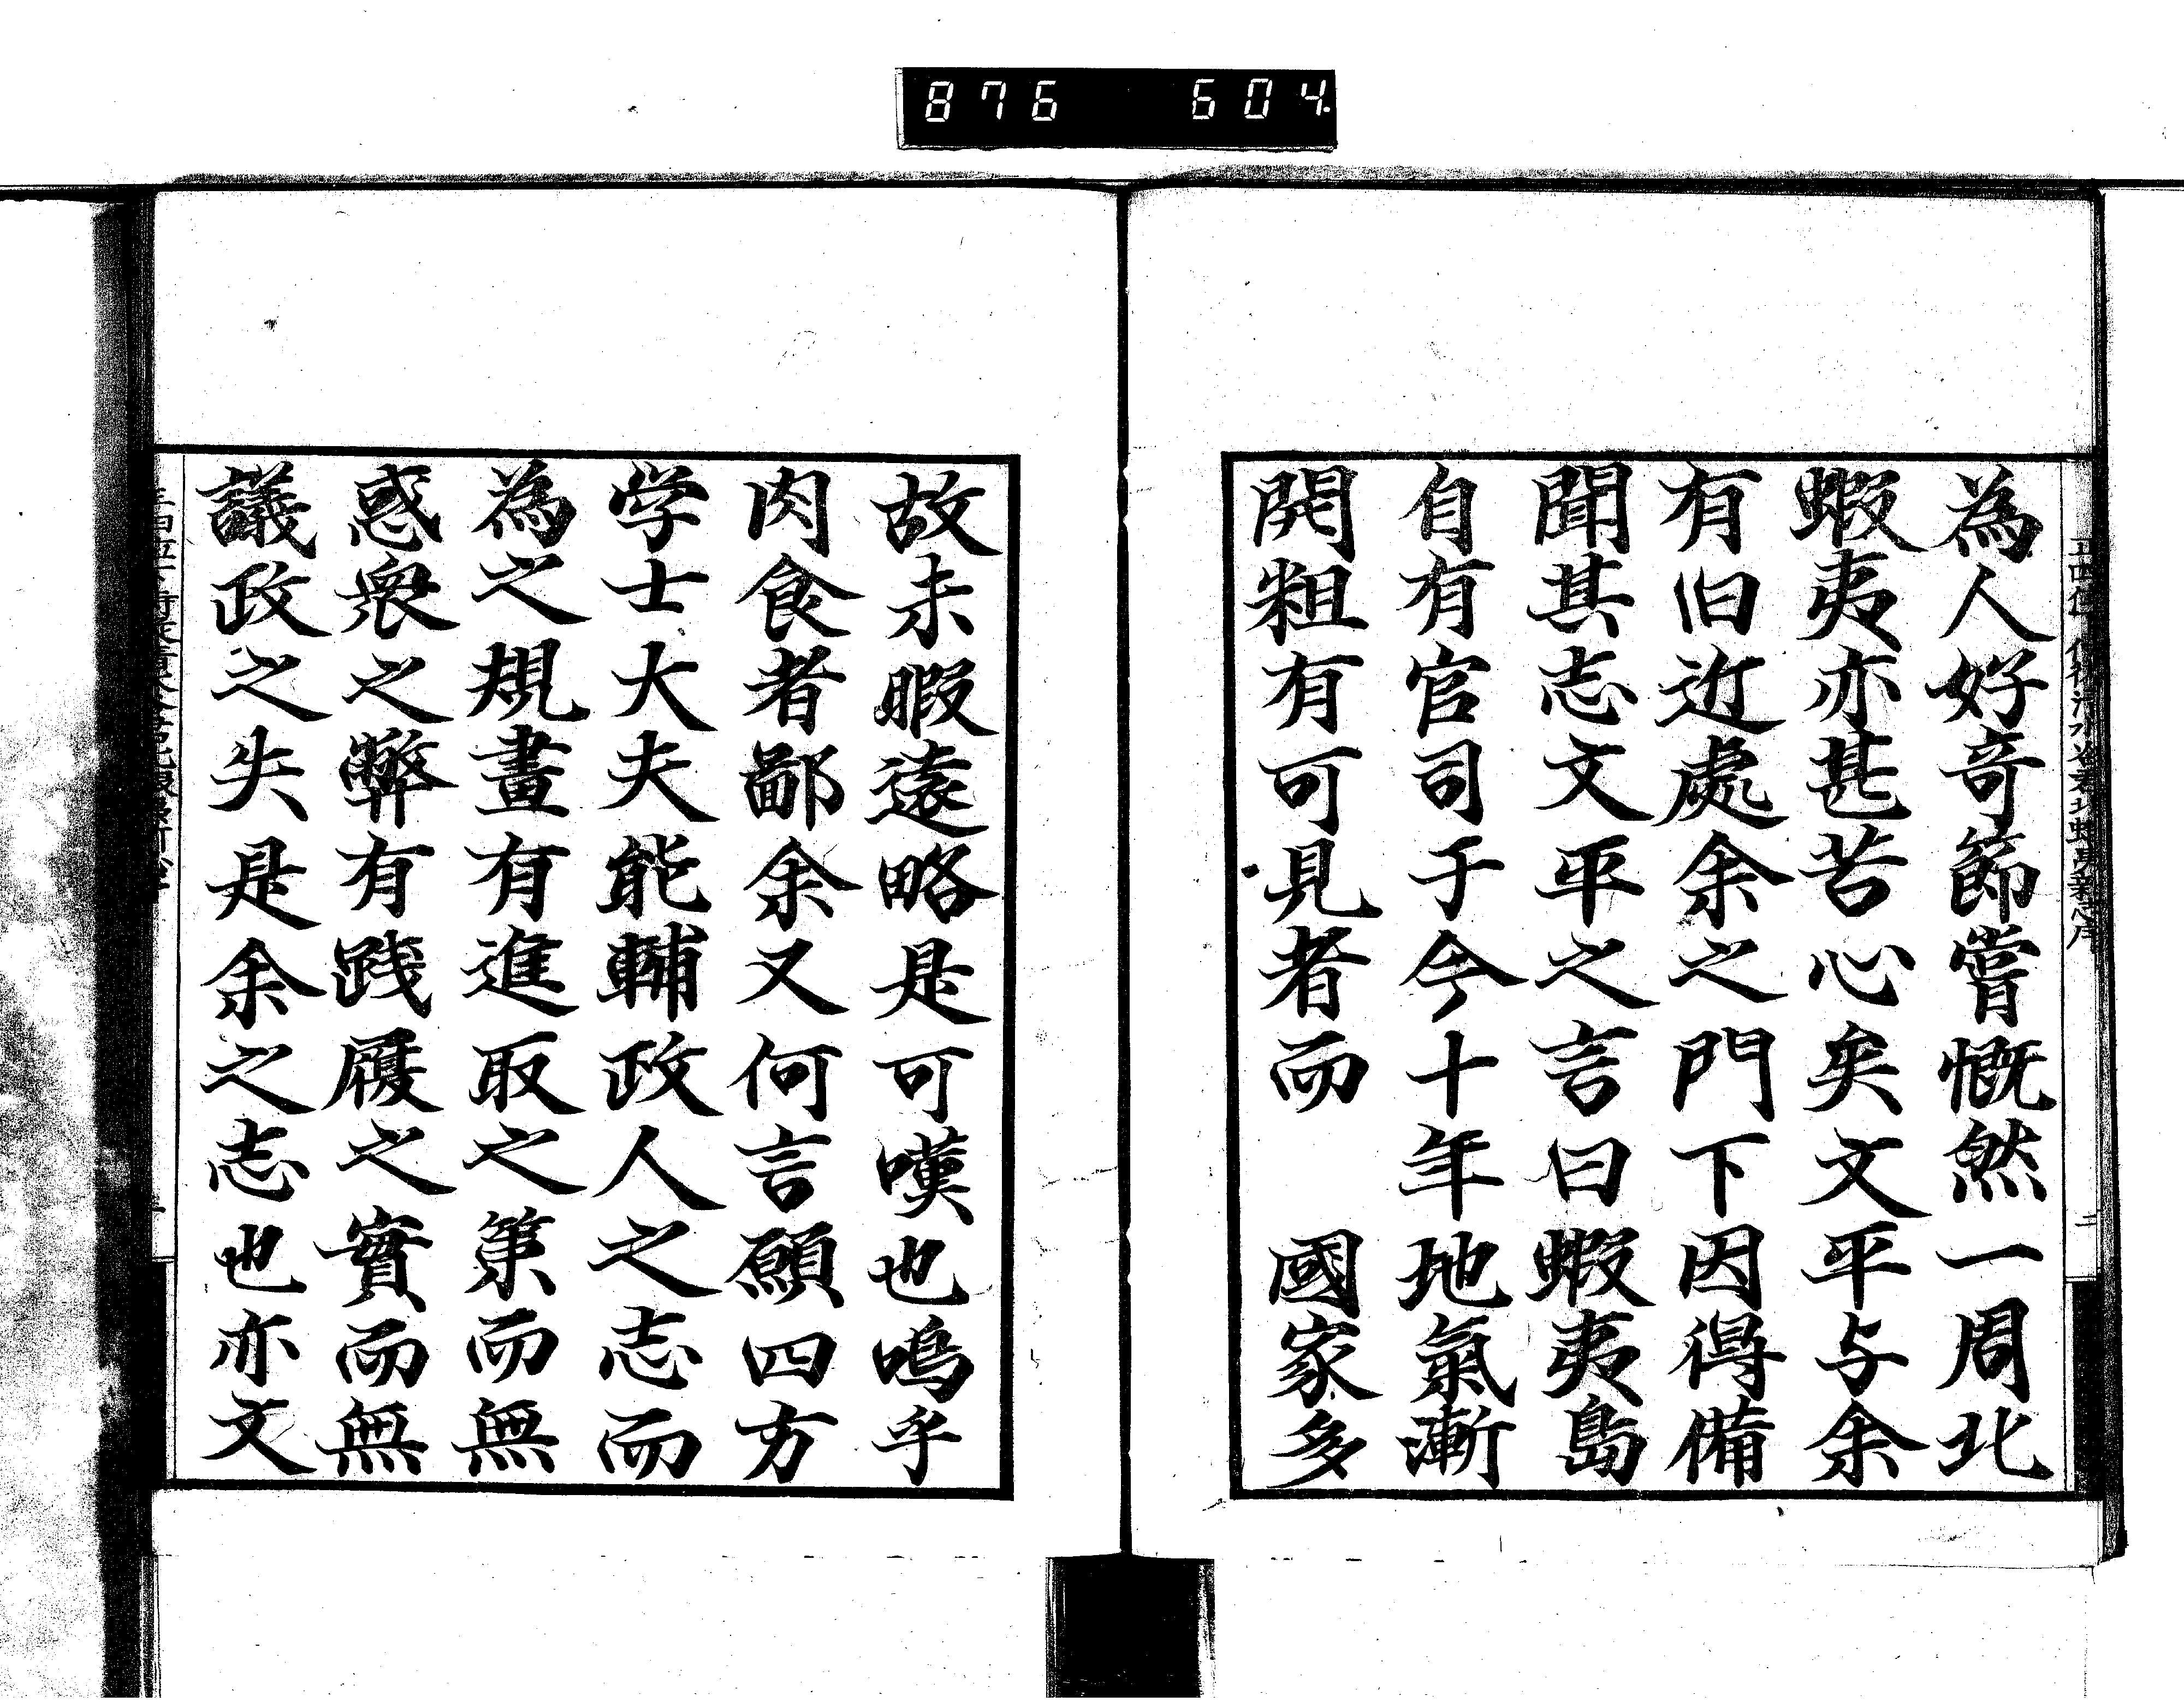 876 604
為人好奇節嘗慨然一周北
蝦夷亦甚苦心矣文平与余
有旧近處余之門下因得備
聞其志文平之言曰蝦夷島
自有官司于今十年地氣漸
開粗有可見者而　國家多
故未暇遠略是可嘆也嗚乎
肉食者鄙余又何言願四方
学士大夫能輔政人之志而
為之規畫有進取之策而無
惑衆之弊有踐履之實而無
議政之失是余之志也亦文